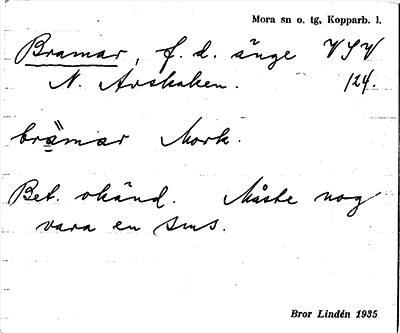 Mora sn o. tg, Kopparb. l.
Bramar, f. d. änge VSV
N. Arskaken. 124.
brämar Mork.
Bet. okänd. Måste nog
vara en sms.
Bror Lindén 1935